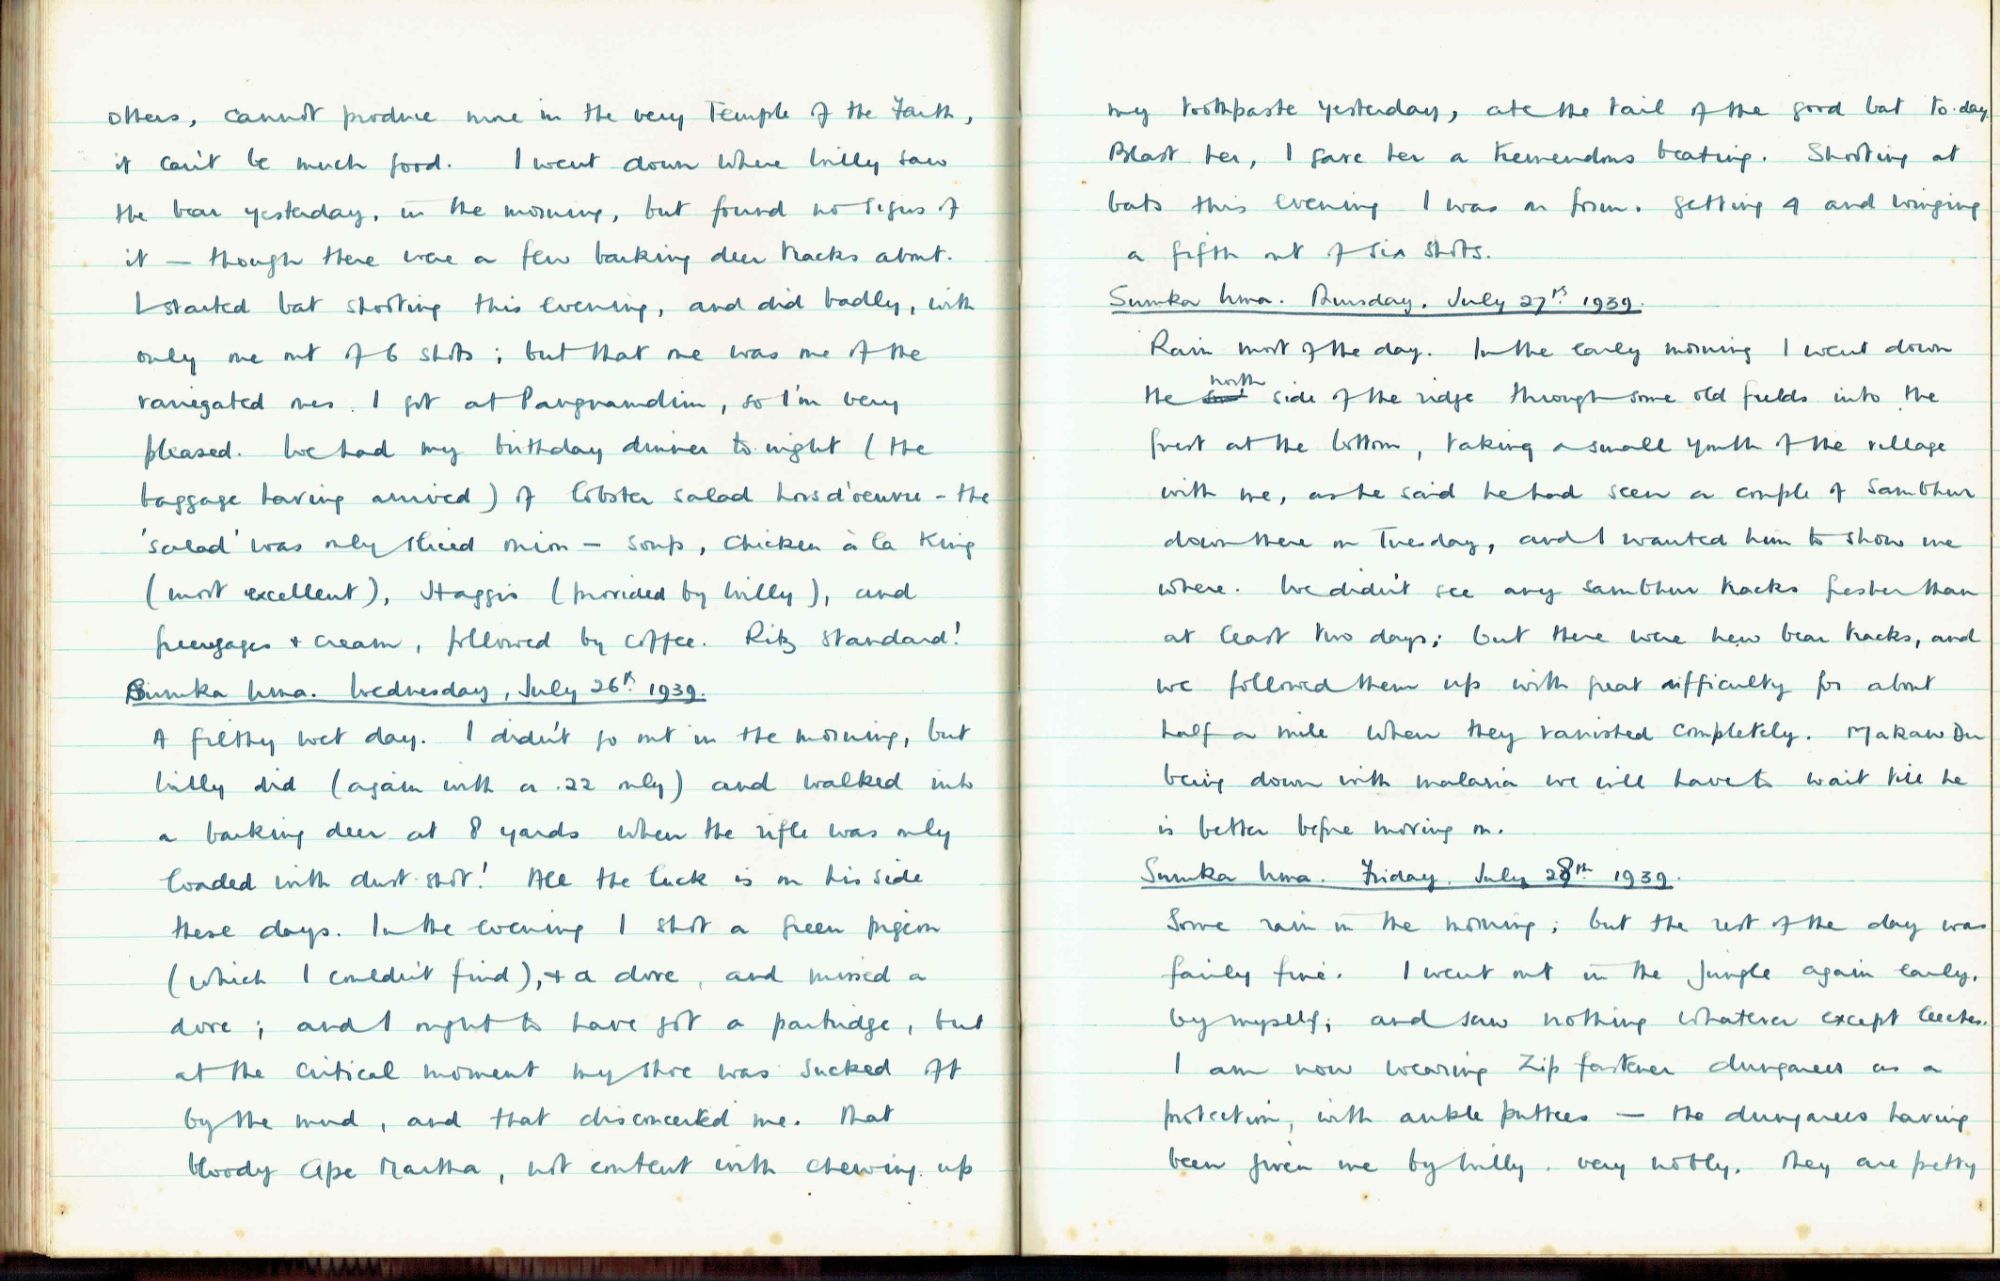 others, cannot produce more in the very Temple of the Faith,
it can't be much good. I went down where Willy saw
the bear yesterday, in the morning, but found no signs of
it — though there were a few barking deer tracks about.
I started bat shooting this evening, and did badly, with
only one out of 6 shots; but that one was one of the
variegated ones I got at Pangnamdim, so I'm very
pleased. We had my birthday dinner to-night (the
baggage having arrived) of lobster salad hors d'oeuvre - the
'salad' was only sliced onion — soup, Chicken à la King
(most excellent), Haggis (provided by Willy), and
greengages + cream, followed by coffee. Ritz standard!
Sumka Uma. Wednesday, July 26th 1939.
A filthy wet day. I didn't go out in the morning, but
Willy did (again with a .22 only) and walked into
a barking deer at 8 yards when the rifle was only
loaded with dust-shot! All the luck is on his side
these days. In the evening I shot a green pigeon
(which I couldn't find), + a dove, and missed a
dove; and I ought to have got a partridge, but
at the critical moment my shoe was sucked off
by the mud, and that disconcerted me. That
bloody ape Martha, not content with chewing up
my toothpaste yesterday, ate the tail of the good bat to-day.
Blast her, I gave her a tremendous beating. Shooting at
bats this evening I was on form, getting 4 and winging
a fifth out of six shots.
Sumka Uma. Thursday, July 27th 1939.
Rain most of the day. In the early morning I went down
the north side of the ridge through some old fields into the
forest at the bottom, taking a small youth of the village
with me, as he said he had seen a couple of sambhur
down there on Tuesday, and I wanted him to show me
where. We didn't see any sambhur tracks fresher than
at least two days; but there were new bear tracks, and
we followed them up with great difficulty for about
half a mile when they vanished completely. Makaw Du
being down with malaria we will have to wait till he
is better before moving on.
Sumka Uma. Friday, July 28th 1939.
Some rain in the morning; but the rest of the day was
fairly fine. I went out in the jungle again early,
by myself; and saw nothing whatever except leeches.
I am now wearing Zip fastener dungarees as a
protection, with ankle puttees — the dungarees having
been given me by Willy, very nobly. They are pretty